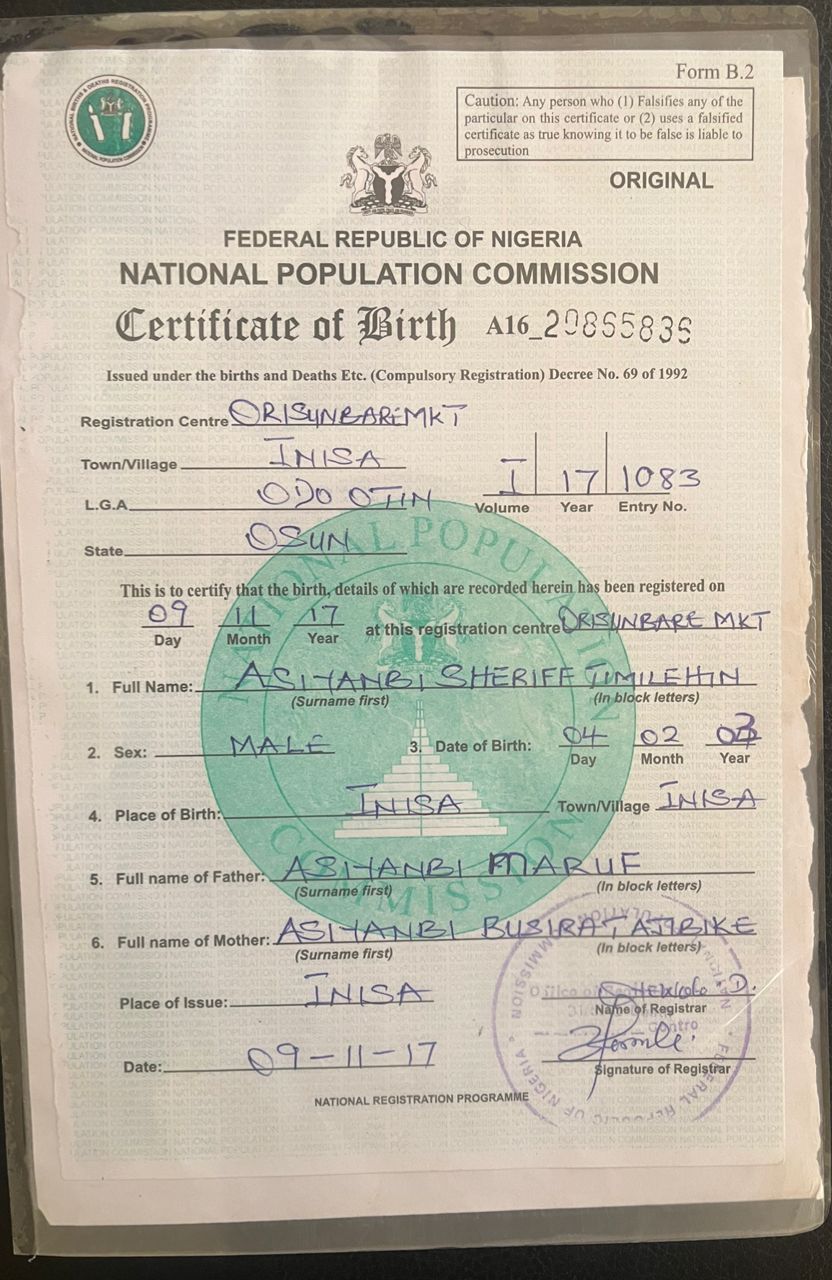 Form B.2
Caution: Any person who (1) Falsifies any of the
particular on this certificate or (2) uses a falsified
certificate as true knowing it to be false is liable to
prosecution
ORIGINAL
FEDERAL REPUBLIC OF NIGERIA
NATIONAL POPULATION COMMISSION
Certificate of Birth A16_20865836
Issued under the births and Deaths Etc. (Compulsory Registration) Decree No. 69 of 1992
Registration Centre ORISUNBARE MKT
Town/Village INISA
L.G.A ODO OTIN I 17 1083
Volume Year Entry No.
State OSUN
This is to certify that the birth, details of which are recorded herein has been registered on
09 11 17 at this registration centre ORISUNBARE MKT
Day Month Year
1. Full Name: ASIYANBI SHERIFF TIMILEHIN
(Surname first) (In block letters)
2. Sex: MALE 3. Date of Birth: 04 02 03
Day Month Year
4. Place of Birth: INISA Town/Village INISA
5. Full name of Father: ASIYANBI MARUF
(Surname first) (In block letters)
6. Full name of Mother: ASIYANBI BUSIRAT AJIBIKE
(Surname first) (In block letters)
Place of Issue: INISA
Name of Registrar
Date: 09-11-17
Signature of Registrar
NATIONAL REGISTRATION PROGRAMME
NATIONAL POPULATION COMMISSION
FEDERAL REPUBLIC OF NIGERIA